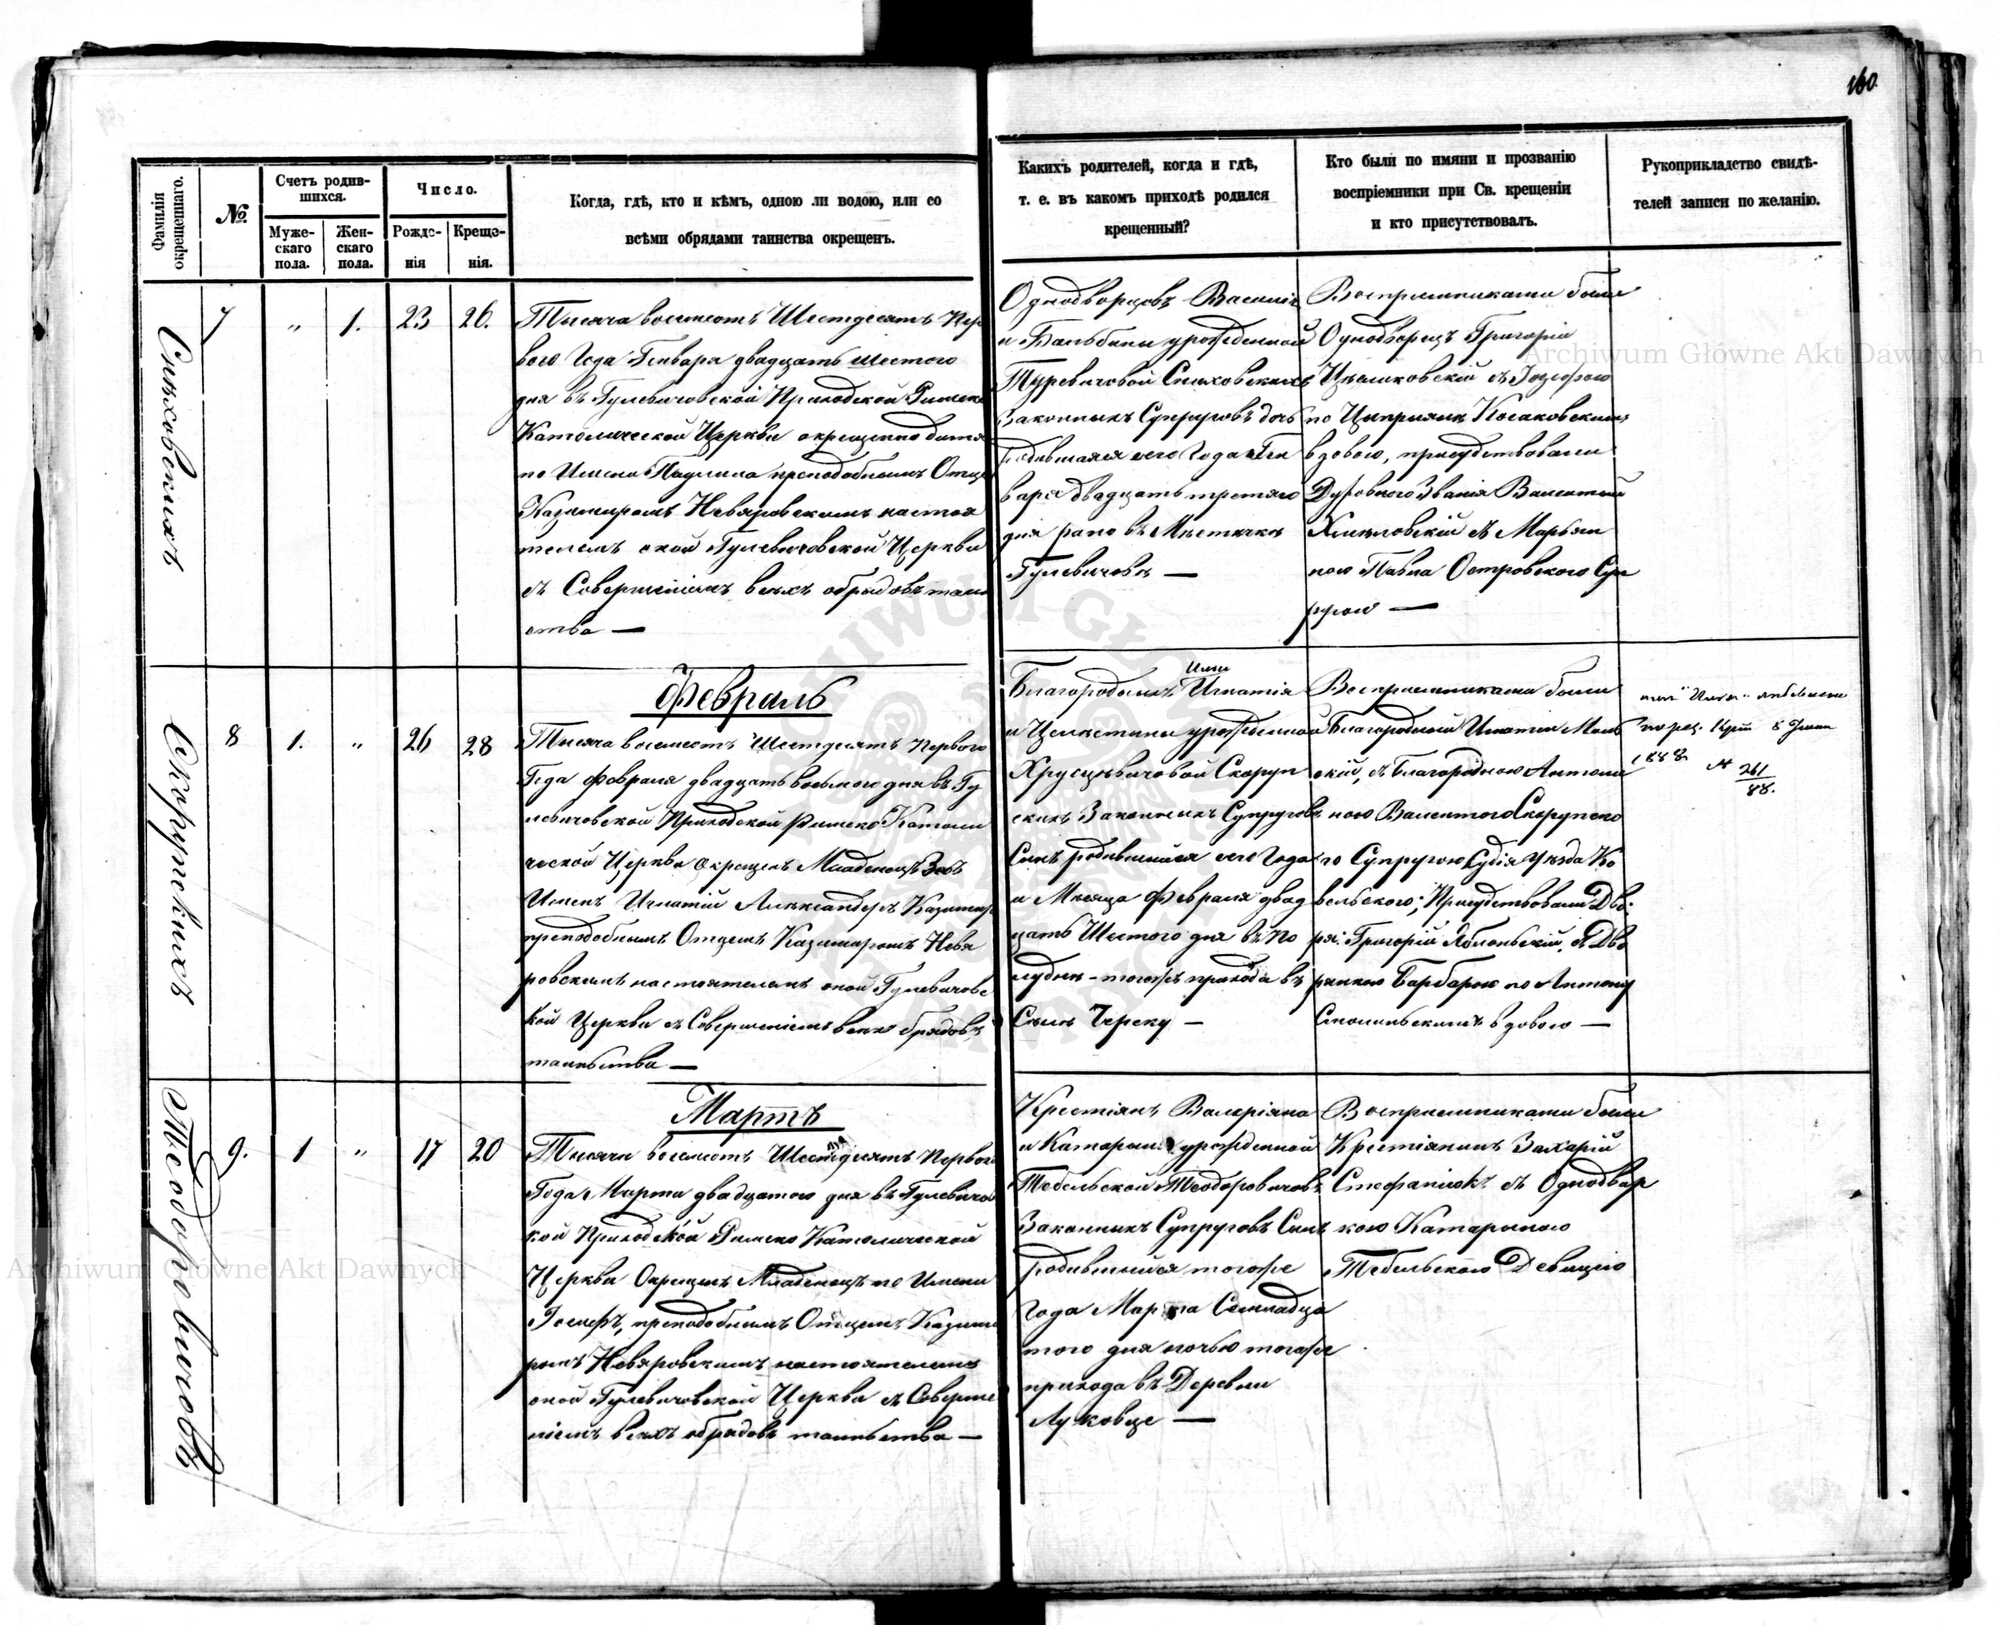 160.
Фамилія окрещеннаго.
№.
Счетъ родив-
шихся.
Муже-
скаго
пола.
Жен-
скаго
пола.
Число.
Рожде-
нія
Креще-
нія.
Когда, гдѣ, кто и кѣмъ, одною ли водою, или со
всѣми обрядами таинства окрещенъ.
Какихъ родителей, когда и гдѣ,
т. е. въ какомъ приходѣ родился
крещенный?
Кто были по имяни и прозванію
воспріемники при Св. крещеніи
и кто присутствовалъ.
Рукоприкладство свидѣ-
телей записи по желанію.
7 " 1. 23 26.
Тысяча восемсотъ Шестдесятъ Пер
вого Года Генваря двадцать шестого
дня въ Гулевичовской Приходской Римско
Католической Церкви окрещенно дитя
по Имени Паулина преподобнымъ Отцемъ
Казимиромъ Невяровскимъ настоя
телемъ оной Гулевичовской Церкви
съ Совершеніемъ всехъ обрядовъ таин
ства —
Однодворцовъ Василія
и Бальбины урожденной
Туревичовой
Законныхъ Супруговъ дочь
родившаяся сего Года Ген
варя двадцать третяго
дня рано въ Мѣстечкѣ
Гулевичовѣ —
Воспріемниками были
Однодворецъ Григорій
съ Іозефою
по Ципріянѣ Косаковскимъ
вдовою, присудствовали
Духовного Званія Валентій
съ Марьян
ною Павла Островского Суп
ругою —
Февраль
Скорупскихъ
8 1. " 26 28
Тысяча восемсотъ Шестдесятъ Первого
Года Февраля двадцать восьмого дня въ Гу
левичовской Приходской Римско Католи
ческой Церкви окрещенъ Младенецъ
Именъ Игнатій Александеръ Казимиръ
преподобнымъ Отцемъ Казимиромъ Невя
ровскимъ настоятелемъ оной Гулевичовс
кой Церкви съ Совершеніемъ всехъ обрядовъ
таинства —
Благородныхъ Игнатія
и Целестины урожденной
Скоруп
скихъ Законныхъ Супруговъ
Сынъ родившийся сего Года
и Мѣсяца Февраля двад
цать Шестого дня въ по
лудни тогожъ прихода въ
Селѣ Череску —
Воспріемниками были
Благородный Игнатій
съ Благородною Антони
ною Валентого Скорупско
го Супругою Судія Уѣзда Ко
вельского; Присудствовали Дво:
ря: Григорій съ Дво
рянкою Барбарою по Антону
вдовою —
1888 № 261/88.
Мартъ
Теодоровичовъ
9. 1 " 17 20
Тысяча восемсотъ Шестдесятъ Первого
Года Марта двадцатого дня въ Гулевичовс
кой Приходской Римско Католической
Церкви Окрещенъ Младенецъ по Имени
Іосифъ, преподобнымъ Отцемъ Казими
ромъ Невяровскимъ настоятелемъ
оной Гулевичовской Церкви съ Соверше
ніемъ всехъ обрядовъ таинства —
Крестіянъ Валеріяна
и Катарины урожденной
Тебельской Теодоровичовъ
Законныхъ Супруговъ Сынъ
родившийся тогоже
Года Марта Семнадца
того дня ночью тогоже
прихода въ Деревни
Луковце —
Воспріемниками были
Крестіянинъ Захарій
Стефанюкъ съ Однодвор
кою Катарыною
Тебельскою Девицею
Archiwum Główne Akt Dawnych
Archiwum Główne Akt Dawnych